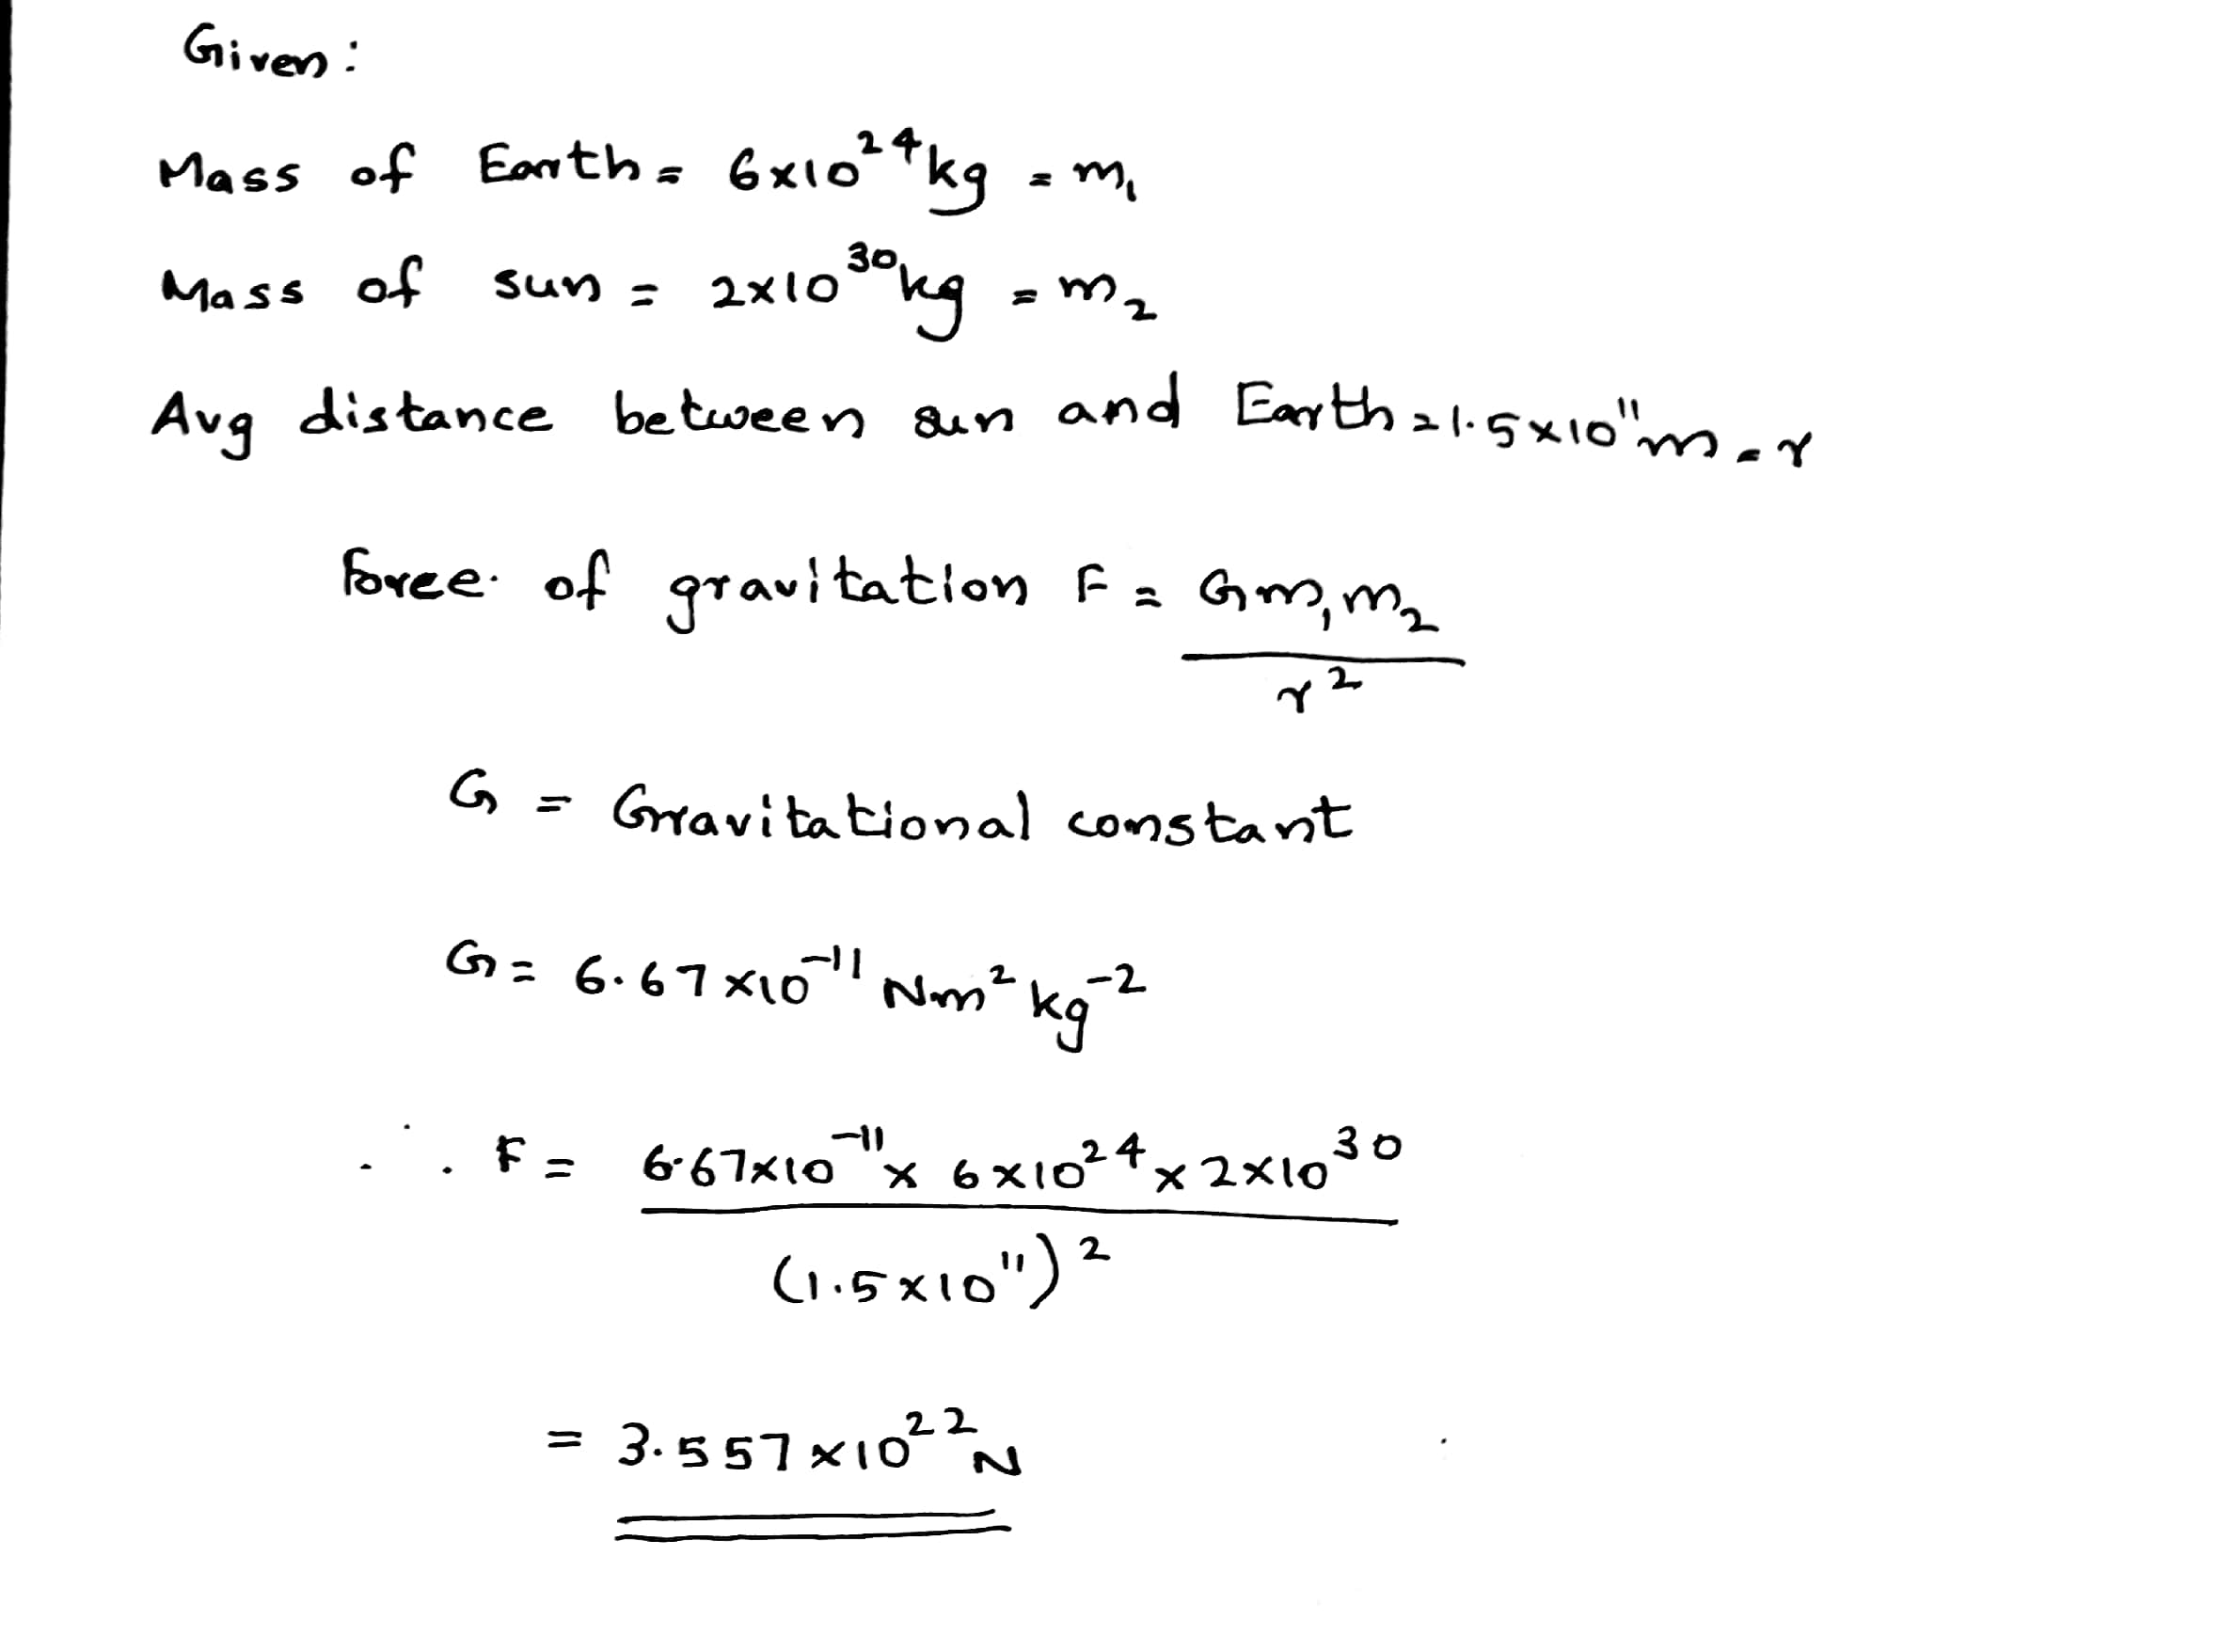 Given:
Mass of Earth = 6x10²⁴kg = m₁
Mass of sun = 2x10³⁰kg = m₂
Avg distance between sun and Earth = 1.5x10¹¹m = r
Force of gravitation F = Gm₁m₂
r²
G = Gravitational constant
G = 6.67x10⁻¹¹ Nm² kg⁻²
∴ F = 6.67x10⁻¹¹ x 6x10²⁴ x 2x10³⁰
(1.5x10¹¹)²
= 3.557x10²² N